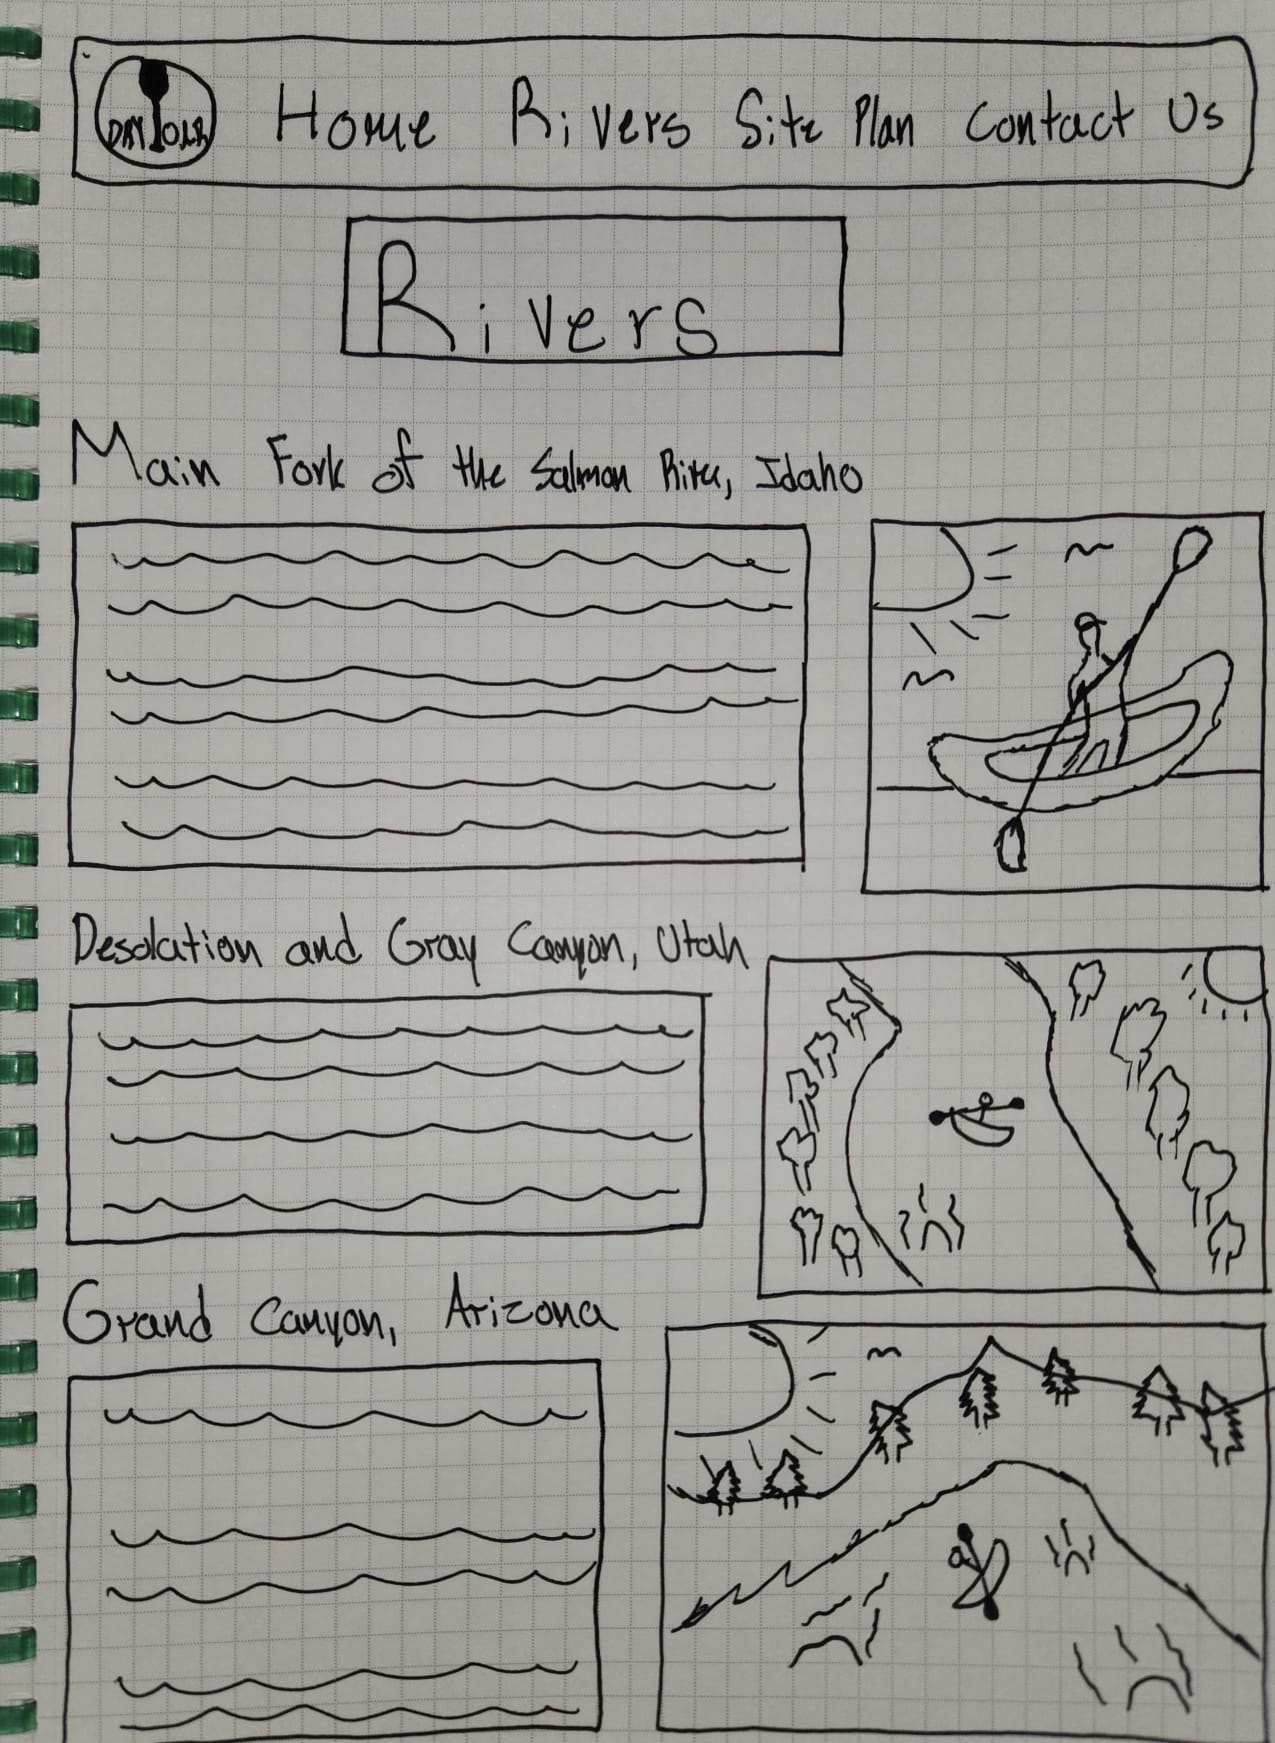 DRY OAR
Home Rivers Site Plan Contact Us
Rivers
Main Fork of the Salmon River, Idaho
Desolation and Gray Canyon, Utah
Grand Canyon, Arizona